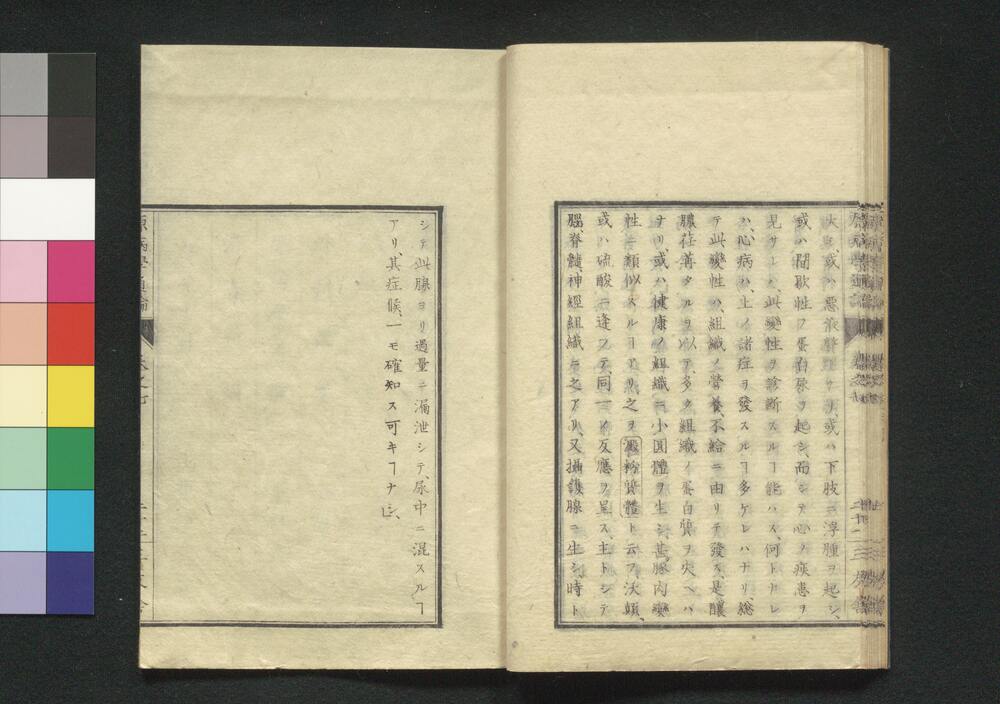 大シ、或ハ悪液質ヨリシ、或ハ下肢ニ浮腫ヲ起シ、
或ハ間歇性ノ蛋白尿ヲ起シ、而シテ心ノ疾患ヲ
見サレハ、此變性ヲ診断スルヿ能ハス、何トナレ
ハ、心病ハ、上ノ諸症ヲ發スルヿ多ケレハナリ、総
テ此變性ハ、組織ノ營養不給ニ由リテ發ス、是釀
膿荏苒タルヲ以テ、多ク組織ノ蛋白質ヲ失ヘバ
ナリ、或ハ健康ノ組織ニ小圓體ヲ生シ、其豚肉變
性ニ類似スルヿアリ、之ヲ澱粉質體ト云フ、沃顛、
或ハ硫酸ニ逢フテ、同一ノ反應ヲ呈ス、主トシテ
腦脊髓、神經組織ニ之アリ、又攝護腺ニ生シ、時ト
シテ此腺ヨリ過量ニ漏泄シテ、尿中ニ混スルヿ
アリ、其症候、一モ確知ス可キヿナシ、